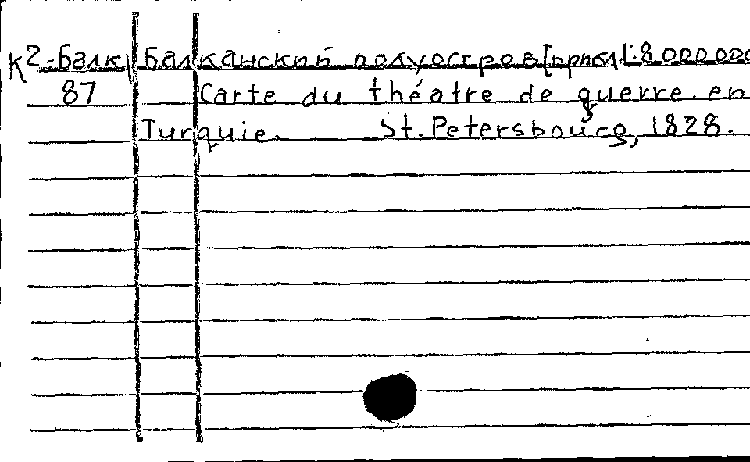 К2-Балк Балканский полуостров [прибл.1:8.000000
87 Carte du théatre de guerre en
Turquie. St. Petersbourg, 1828.